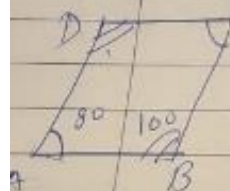 D
80 100
A B